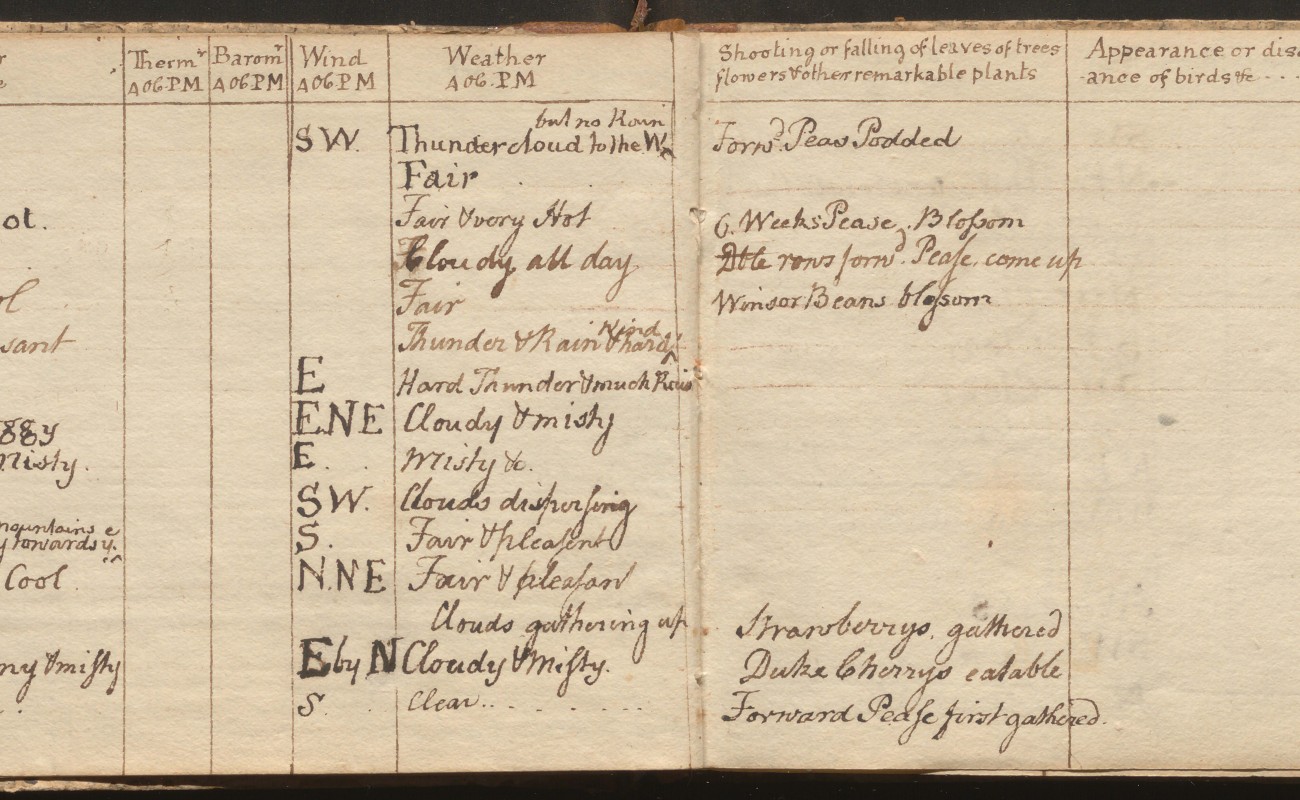 r Therm.r Barom.r Wind Weather Shooting or falling of leaves of trees Appearance or dis
e A 06. P.M A 06. P M A 06. P M A 06. P M flowers & other remarkable plants ance of birds &c
but no Rain
SW. Thunder cloud to the W. ^ Forw.d Peas Podded
Fair
ot. Fair & very Hot 6. Weeks Pease. Bloſsom
Cloudy all day Dble rows forw.d Peaſe. come up
ol Fair Winsor Beans bloſsom
sant Thunder & Rain & hard ^ Wind
E Hard Thunder & much Rain
E.N E Cloudy & misty
ggy
Misty. E. Misty &c.
SW. Clouds disperſing
mountains e
towards y. ^ S. Fair & pleaſent
Cool. N.NE Fair & pleaſant
Clouds gathering up Strawberrys. gathered
ny & miſty E by N Cloudy & Miſty. Duke Cherrys eatable
S. Clear.. Forward Peaſe first gathered.